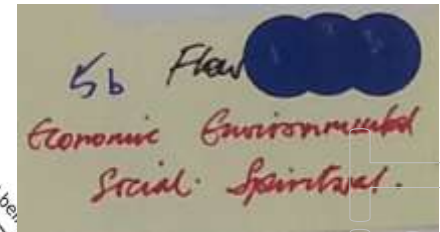 5b Flow
Economic Environmental
Social. Spiritual.